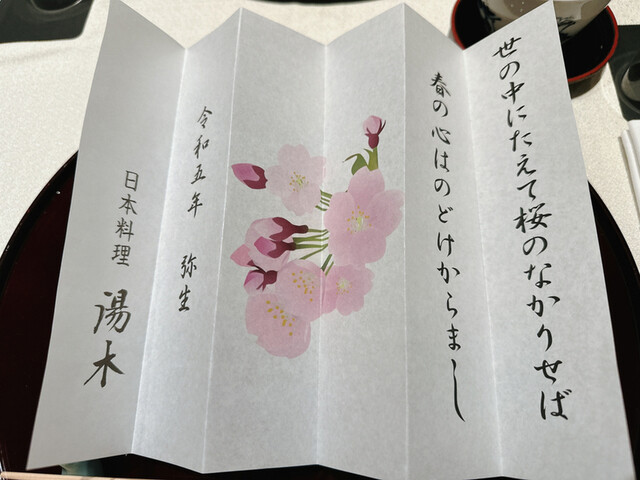 世の中にたえて桜のなかりせば
春の心はのどけからまし
令和五年 弥生
日本料理 湯木